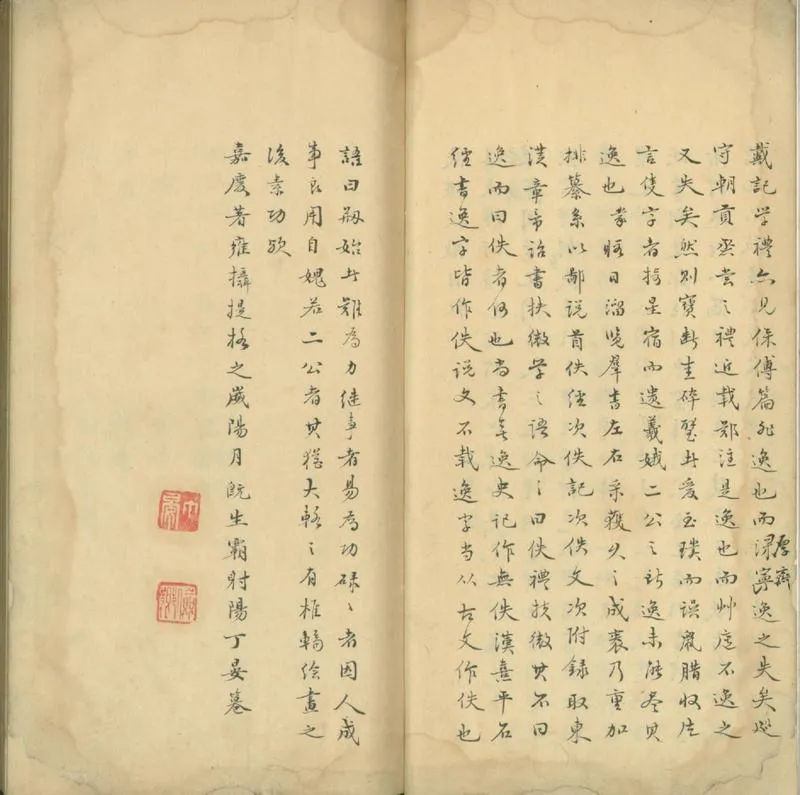 戴記學禮亦見保傅篇非逸也而深寧逸之失矣巡
厚齋
守朝貢烝嘗之禮近载鄭注是逸也而艸廬不逸之
又失矣然則寶斷圭碎璧者愛玉璞而誤鼠腊收片
言隻字者掎星宿而遺羲娥二公之訂逸未能盡其
逸也掌暇日溜覽羣書左右采穫久之成袠乃重加
排纂系以鄙説首佚經次佚記次佚文次附録取東
漢章帝詔書扶微學之語命之曰佚禮扶微其不曰
逸而曰佚者何也尚書無逸史記作無佚漢熹平石
經書逸字皆作佚説文不載逸字當从古文作佚也
語曰刱始者難為力继事者易為功碌碌者因人成
事良用自媿若二公者其猶大輅之有椎輪繪畫之
後素功歟
嘉慶著雍攝提格之歲陽月既生霸射陽丁晏纂
丁晏
儉卿